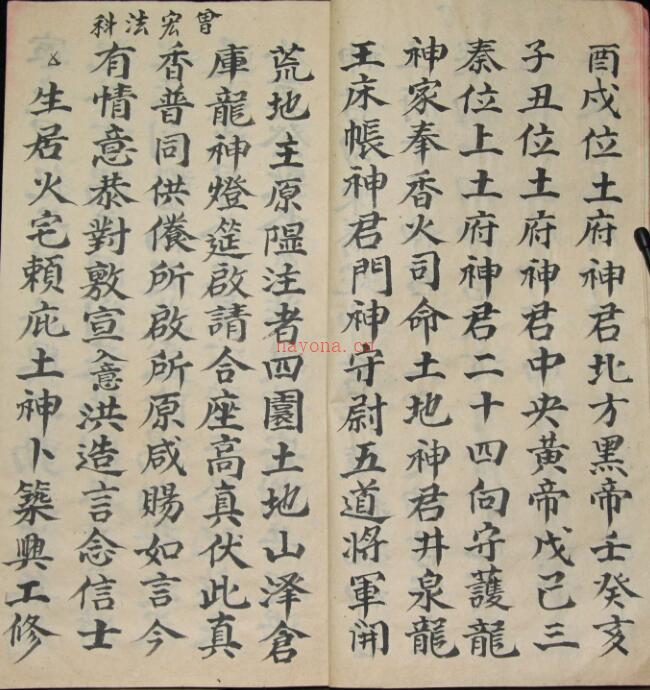 酉戍位土府神君北方黑帝壬癸亥
子丑位土府神君中央黃帝戊己三
秦位上土府神君二十四向守護龍
神家奉香火司命土地神君井泉龍
王床帳神君門神守尉五道將軍開
荒地主原隰注者四園土地山泽倉
庫龍神燈筵啟請合座高真伏此真
香普同供養所啟所原咸賜如言今
有情意恭對敷宣入意洪造言念信士
生居火宅賴庇土神卜築興工修
曾宏法科
nayona.cn